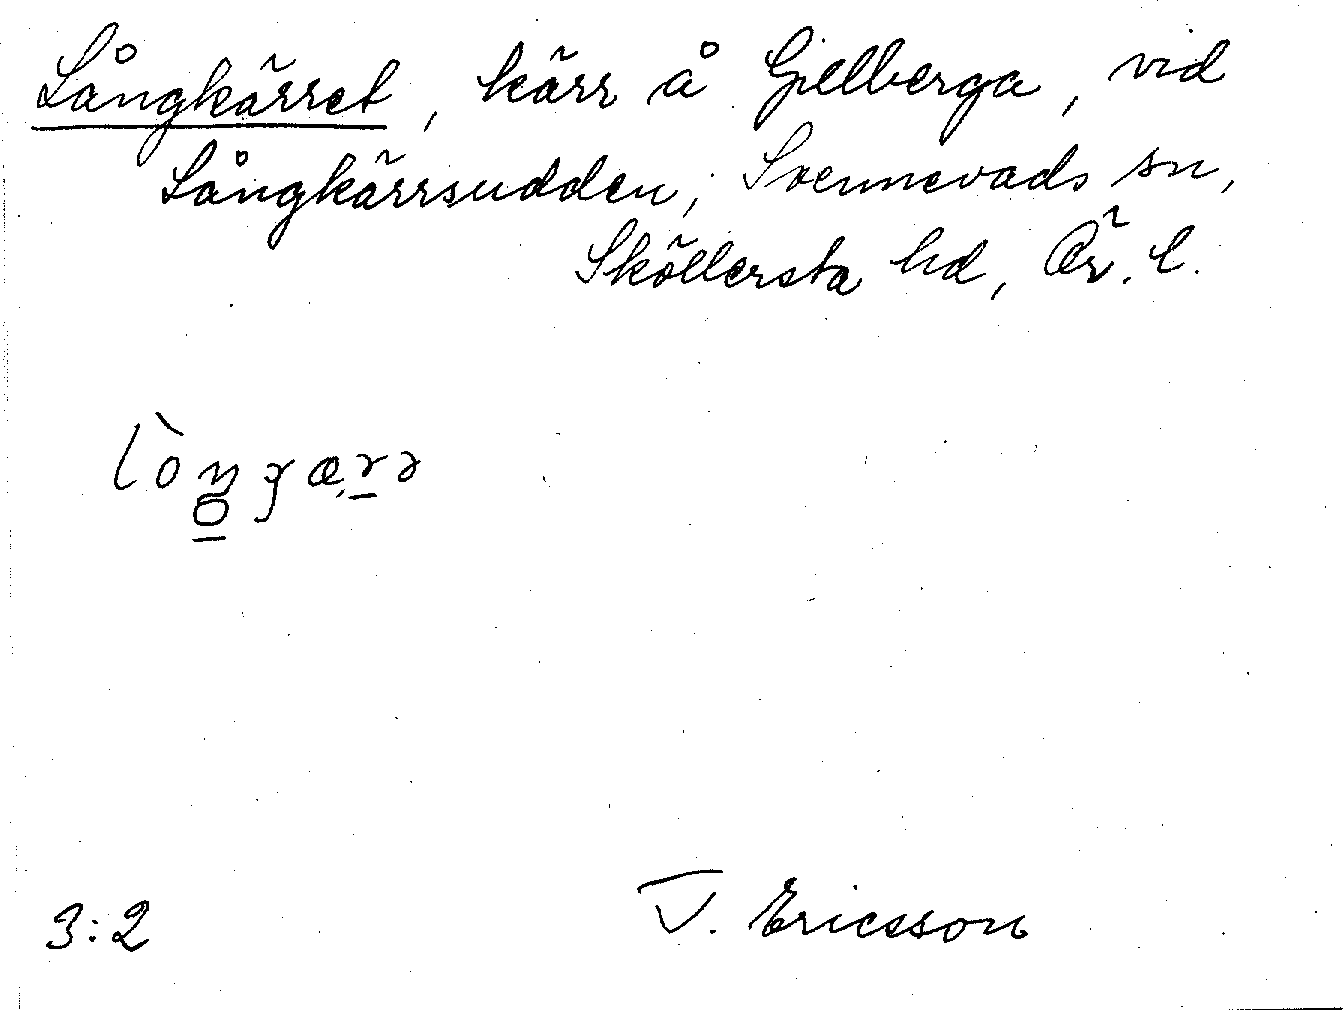 Långkärret, kärr å Gjellberga, vid
Långkärrsudden, Svennevads sn,
Sköllersta hd, Ör. l.
3:2
T. Ericsson